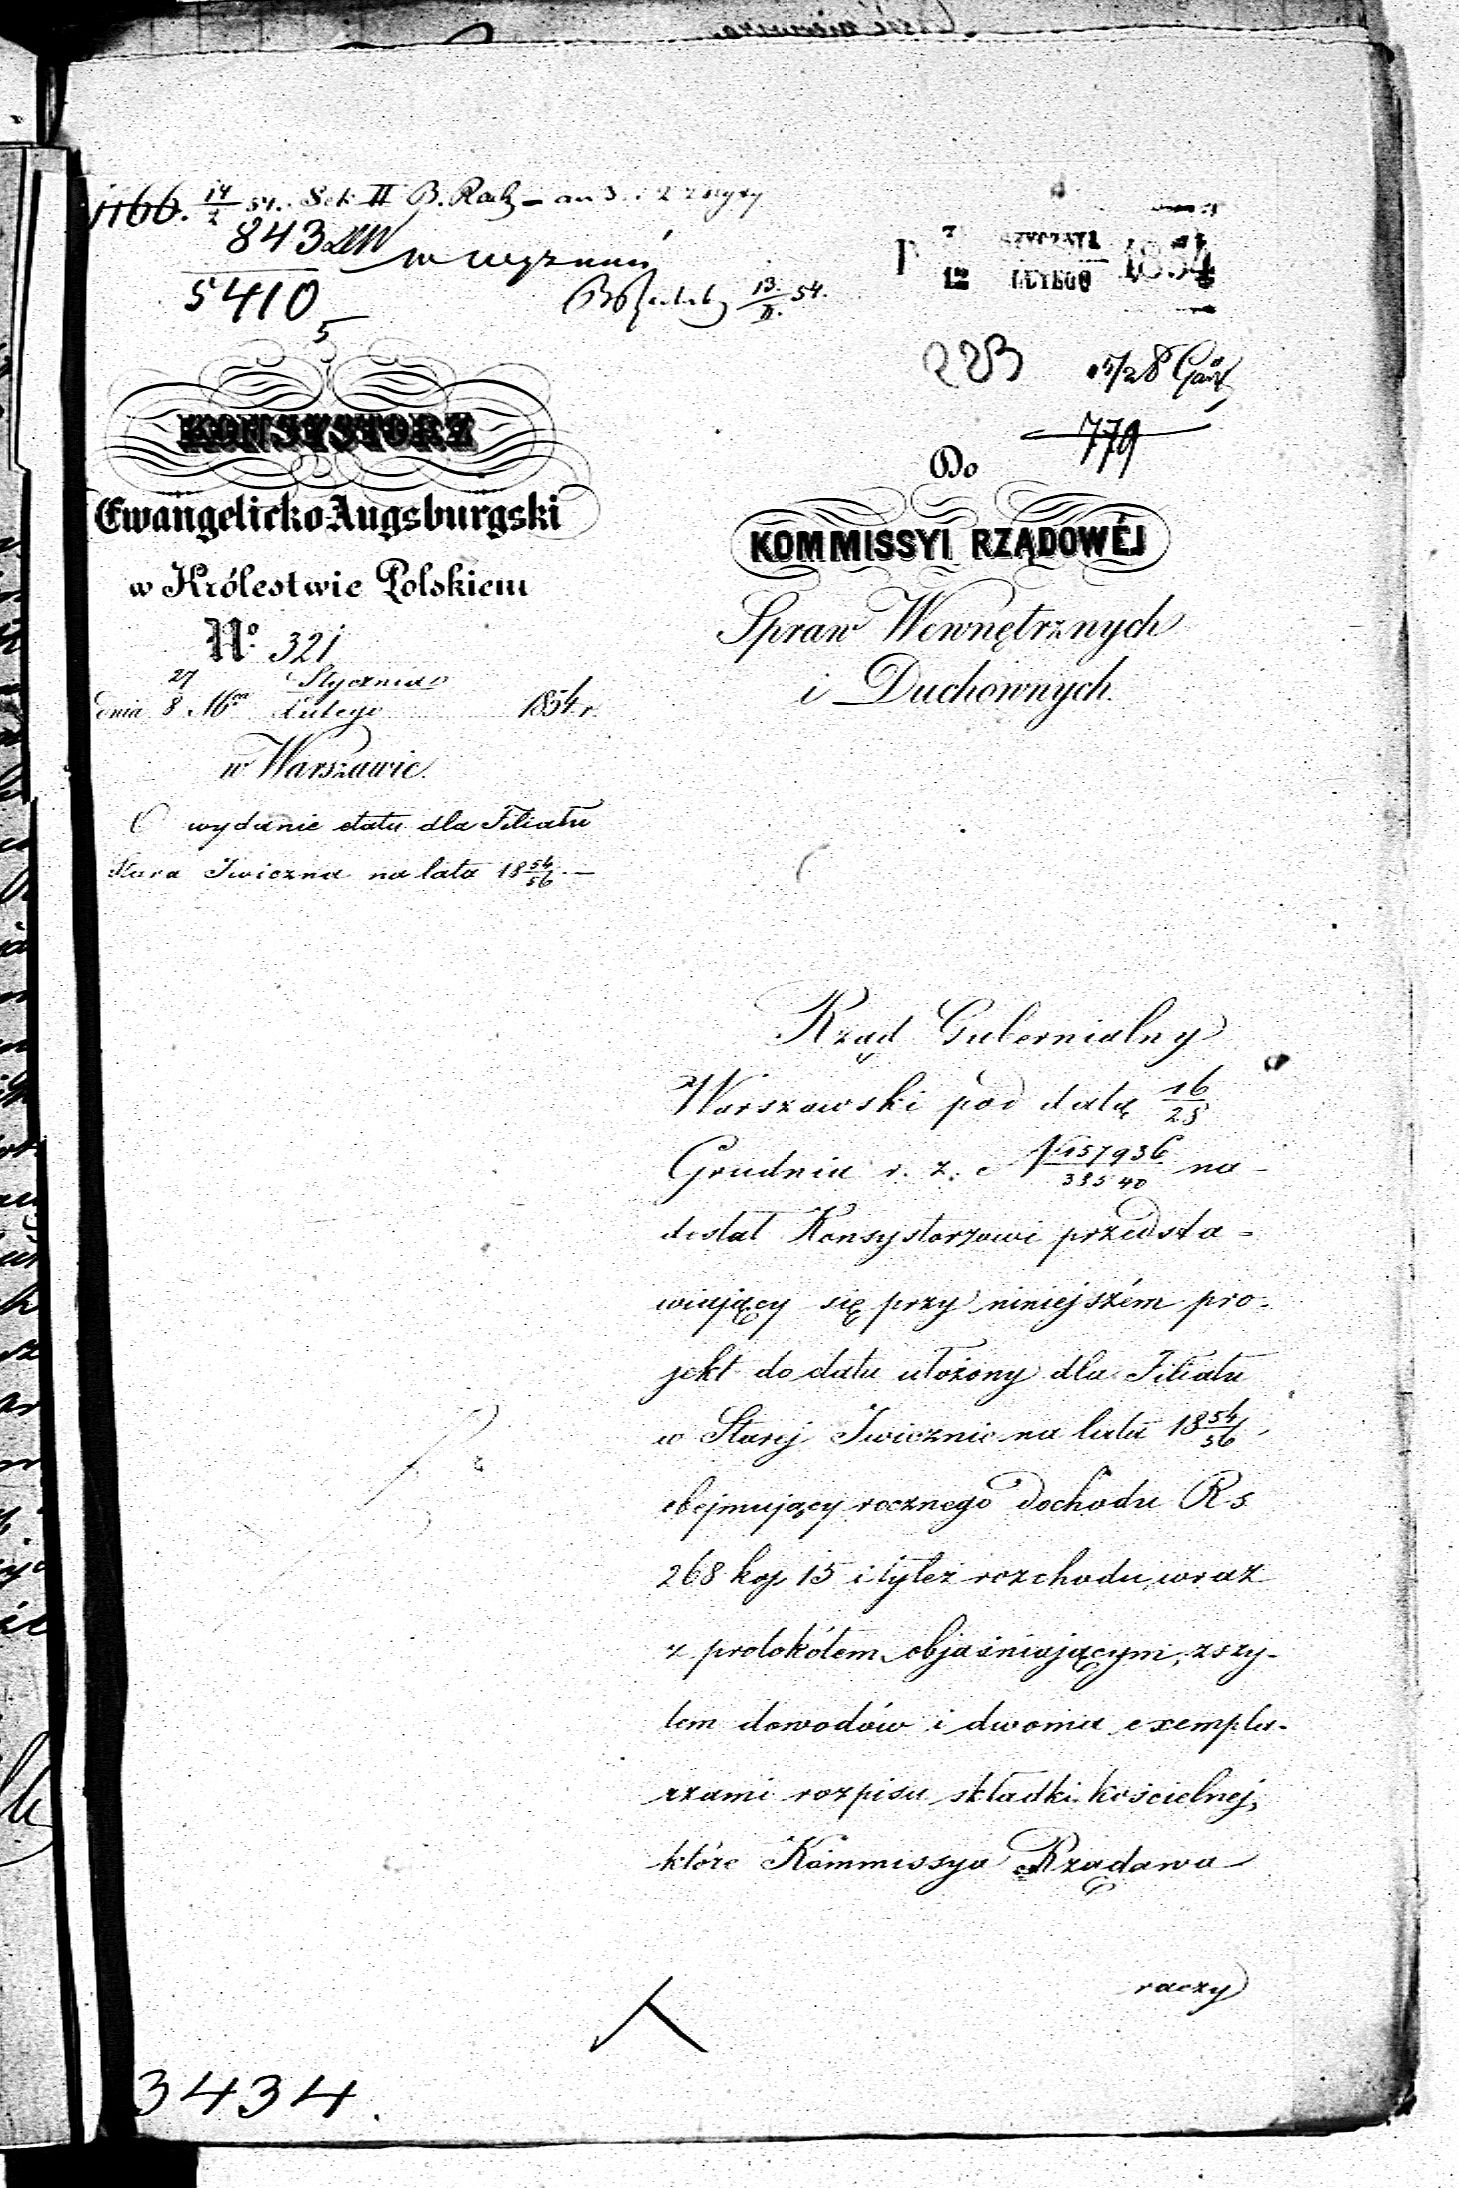 1166. 14/2 54. Sek II B. Rach
843
5410
5
13/II. 54.
STYCZNIA
12 LUTEGO 1854
223
779
KONSYSTORZ
Ewangelicko-Augsburgski
w Królestwie Polskiem
No. 321
27 Stycznia
dnia 8 Mca Lutego 1854 r.
w Warszawie.
O wydanie etatu dla Filiału
Stara Iwiczna na lata 18 54/56. —
Do
KOMMISSYI RZĄDOWÉJ
Spraw Wewnętrznych
i Duchownych.
Rząd Gubernialny
Warszawski pod datą 16/28
Grudnia r. z. N 157936/38540 na-
destał Konsystorzowi przedsta-
wiający się przy niniejszém pro-
jekt do etatu ułożony dla Filiału
w Starej Iwicznie na lata 18 54/56,
obejmujący rocznego dochodu Rs
268 kop 15 i tyleż rozchodu, wraz
z protokółem objaśniającym, zszy-
tem dowodów i dwoma exempla-
rzami rozpisu składki kościelnej,
które Kommissya Rządowa
raczy
3434.